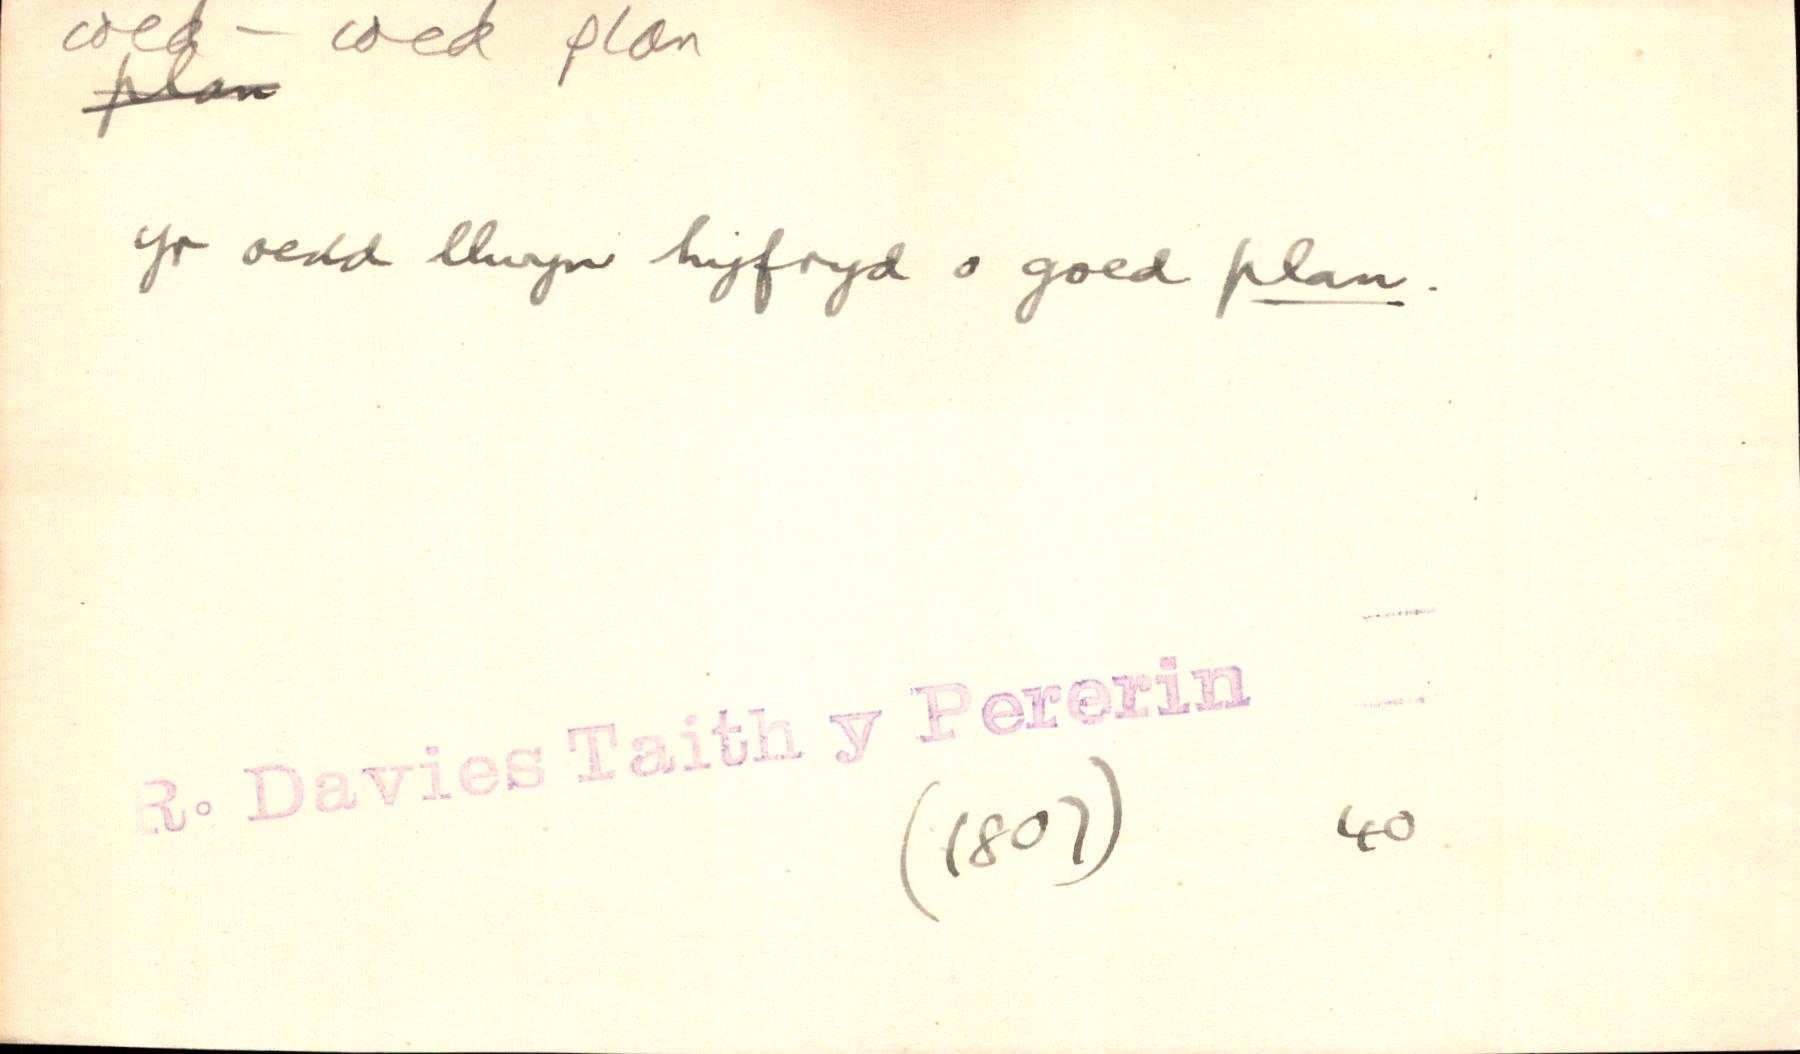 coed – coed plan
plan
yr oedd llwyn hyfryd o goed plan.
R. Davies Taith y Pererin
(1807) 40